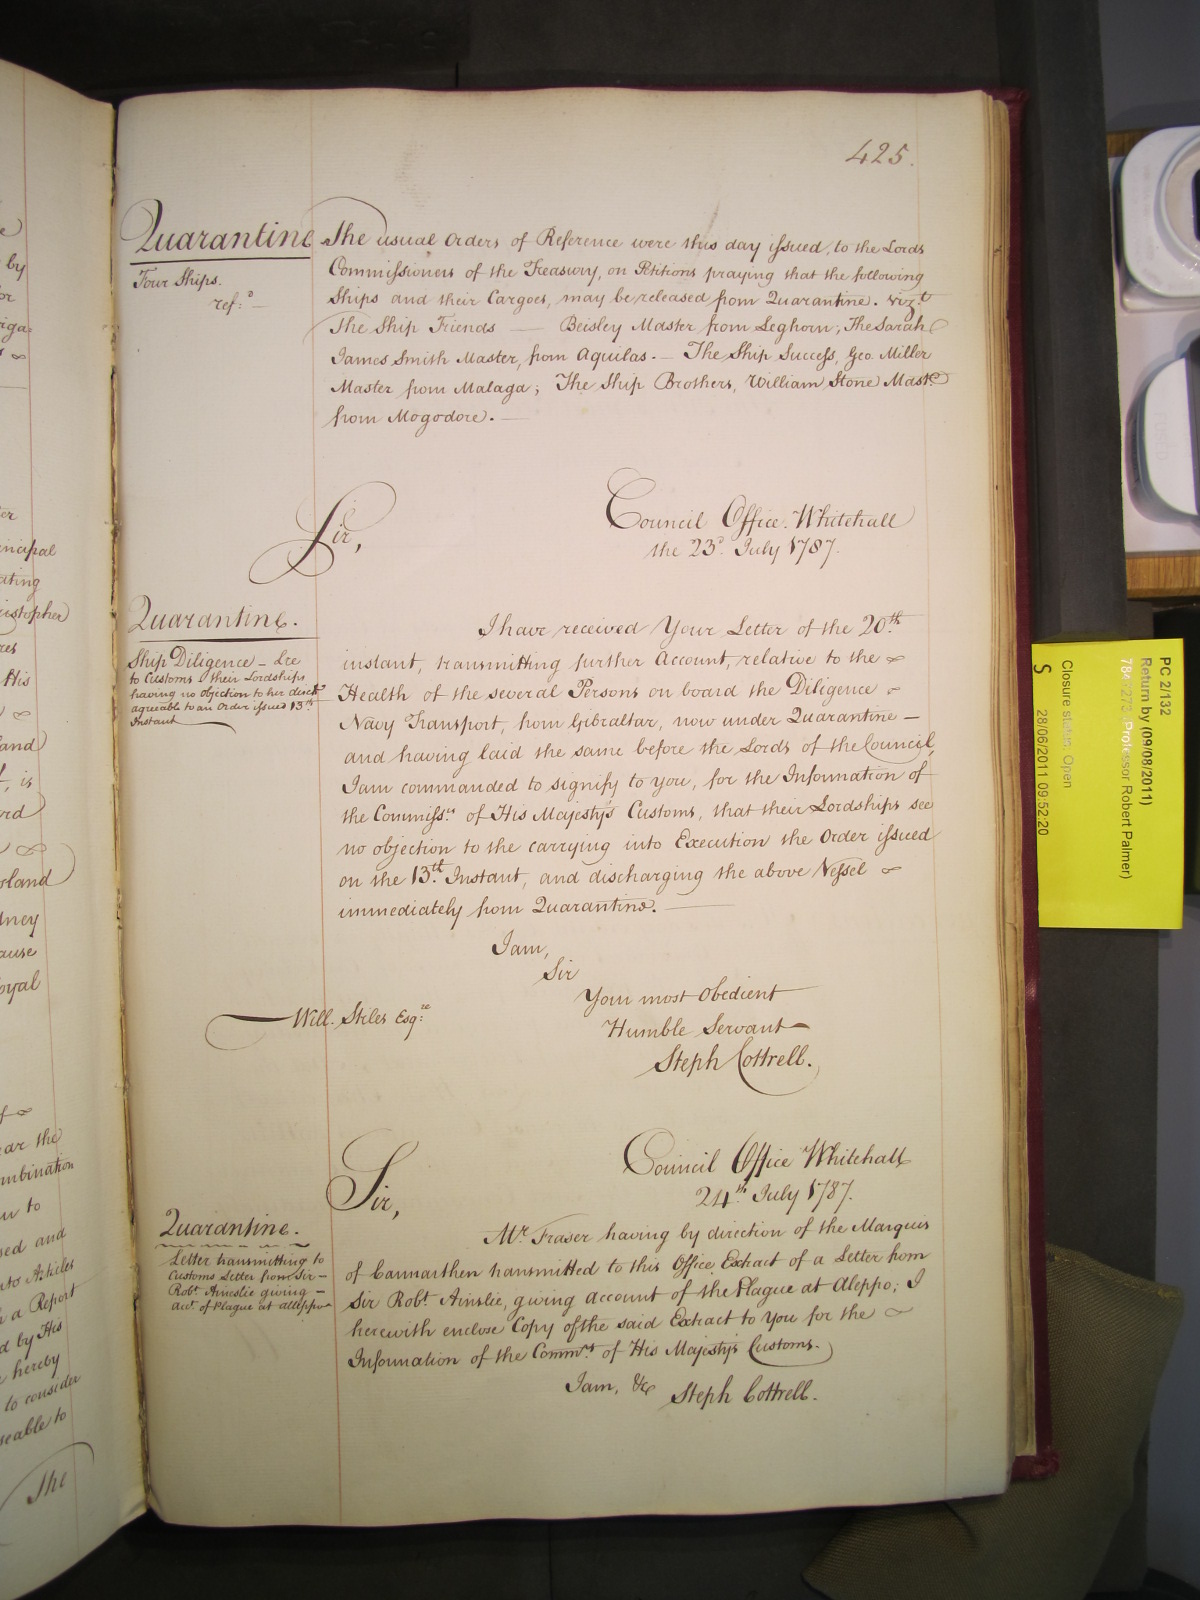 425.
Quarantine
Four Ships.
ref:d
The usual Orders of Reference were this day issued, to the Lords
Commissioners of the Treasury, on Petitions praying that the following
Ships and their Cargoes, may be released from Quarantine. vizt
The Ship Friends — Beisley Master from Leghorn; The Sarah
James Smith Master, from Aquilas. — The Ship Success, Geo. Miller
Master from Malaga; The Ship Brothers, William Stone Mastr
from Mogodore. —
Sir,
Council Office. Whitehall
the 23d. July 1787.
Quarantine.
Ship Diligence – Lre
to Customs their Lordships
having no objection to her disch
agreable to an Order issued 13th
Instant
I have received Your Letter of the 20th
instant, transmitting further Account, relative to the
Health of the several Persons on board the Diligence
Navy Transport, from Gibraltar, now under Quarantine —
and having laid the same before the Lords of the Council,
I am commanded to signify to you, for the Information of
the Commissrs of His Majesty's Customs, that their Lordships see
no objection to the carrying into Execution the Order issued
on the 13th Instant, and discharging the above Vessel
immediately from Quarantine. —
I am,
Sir
Your most Obedient
Humble Servant
Steph Cottrell.
Will. Stiles Esq:re
Sir,
Council Office Whitehall
24th July 1787.
Quarantine.
Letter transmitting to
Customs Letter from Sir —
Robt Ainslie giving —
acct. of Plague at alleppo
Mr. Fraser having by direction of the Marquis
of Carmarthen transmitted to this Office Extract of a Letter from
Sir Robt. Ainslie, giving account of the Plague at Aleppo; I
herewith enclose Copy of the said Extract to You for the
Information of the Commrs of His Majesty's Customs.
I am, &c Steph Cottrell.
by
ncipal
ating
istopher
His
land
is
oland
dney
ause
oyal
ear the
mbination
to
sed and
nto Articles
a Report
d by His
hereby
to consider
seable to
The
PC 2/132
Return by (09/08/2011)
Professor Robert Palmer)
Closure status: Open
S
28/06/2011 09:52:20